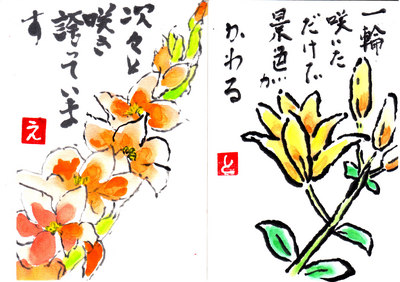 次々と
咲き
誇っていま
す
え
一輪
咲いた
だけで
景色が
かわる
と